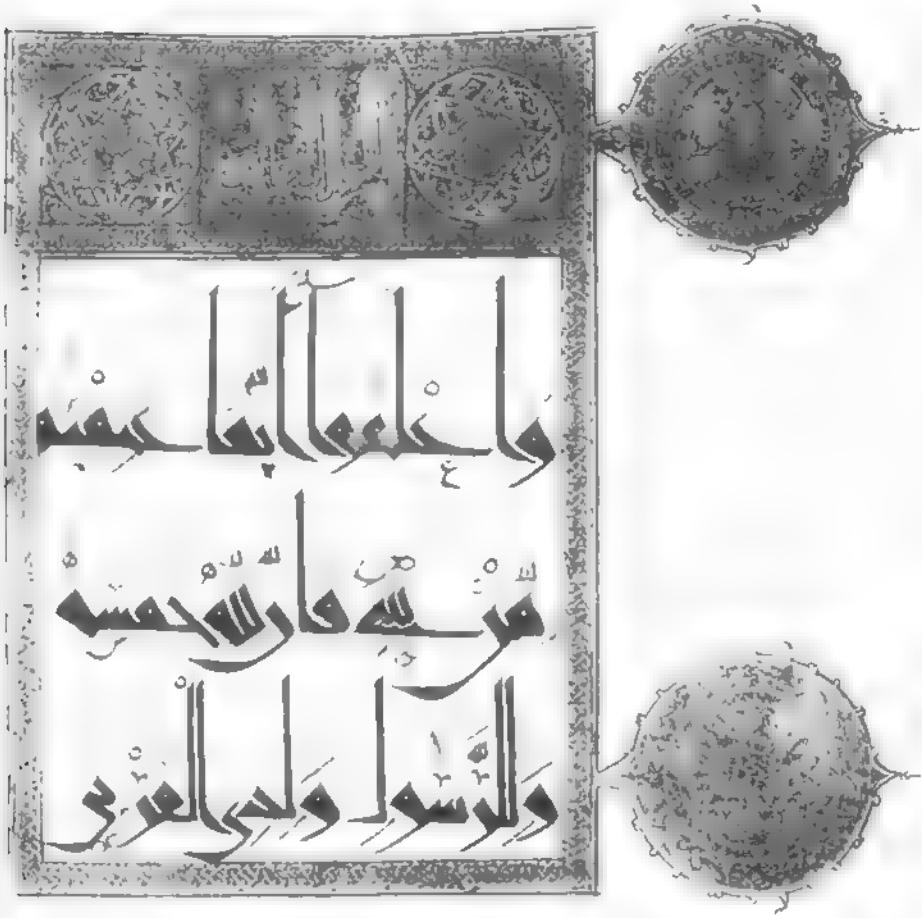 وَاعْلَمُوا أَنَّمَا غَنِمْتُم
مِّنْ شَيْءٍ فَأَنَّ لِلَّهِ خُمُسَهُ
وَلِلرَّسُولِ وَلِذِي الْقُرْبَى